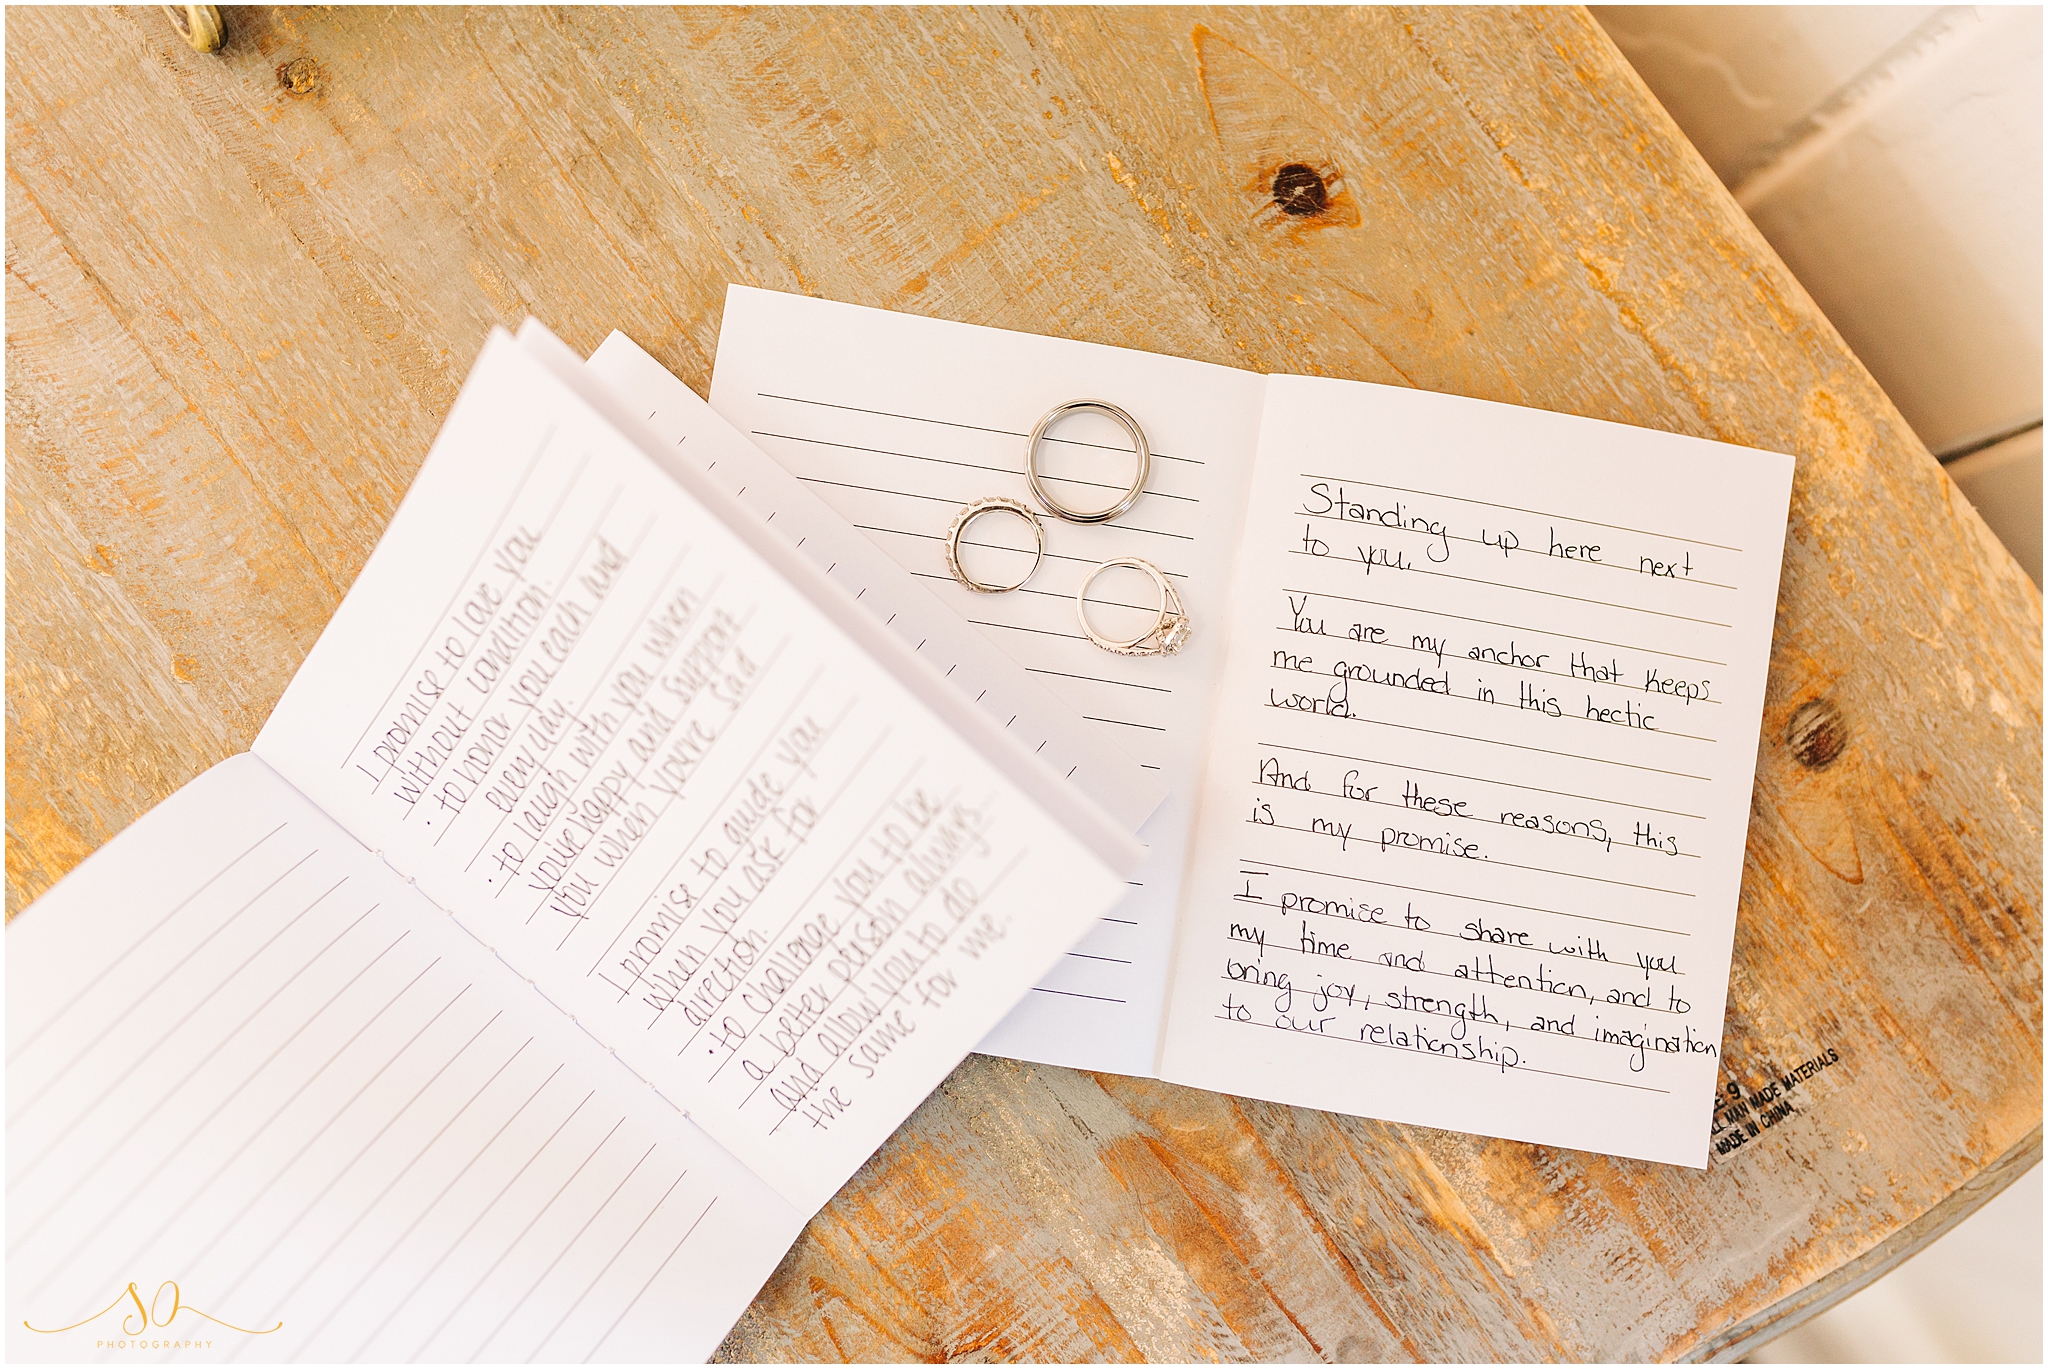 I promise to love you
without condition.
• to honor you each and
every day.
• to laugh with you when
you're happy and support
you when you're sad
I promise to guide you
when you ask for
direction.
• to challenge you to be
a better person always.
and allow you to do
the same for me.
Standing up here next
to you.
You are my anchor that keeps
me grounded in this hectic
world.
And for these reasons, this
is my promise.
I promise to share with you
my time and attention, and to
bring joy, strength, and imagination
to our relationship.
9
MAN MADE MATERIALS
MADE IN CHINA
SO
PHOTOGRAPHY